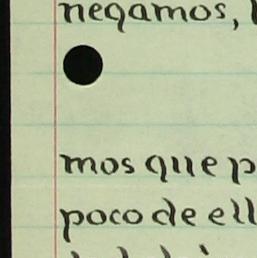 negamos,
mos que p
poco de ell